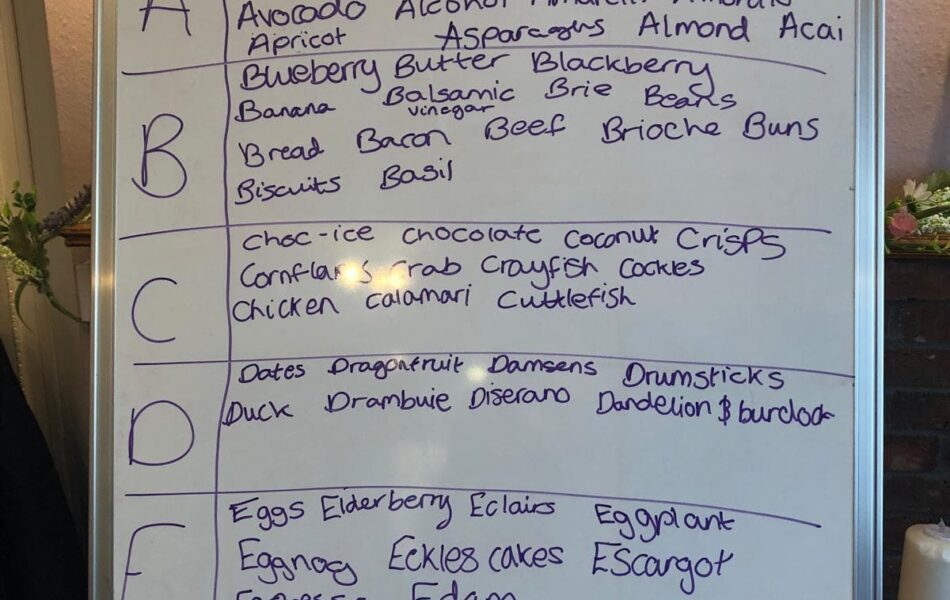 A
Avocado Alcohol
Apricot Asparagus Almond Acai
B
Blueberry Butter Blackberry
Banana Balsamic vinegar Brie Beans
Bread Bacon Beef Brioche Buns
Biscuits Basil
C
Choc-ice chocolate coconut Crisps
Crab Crayfish Cockles
Chicken calamari Cuttlefish
D
Dates Dragonfruit Damsens Drumsticks
Duck Drambuie Diserano Dandelion & burdock
E
Eggs Elderberry Eclairs Eggplant
Eggnog Eckles cakes Escargot
Edam